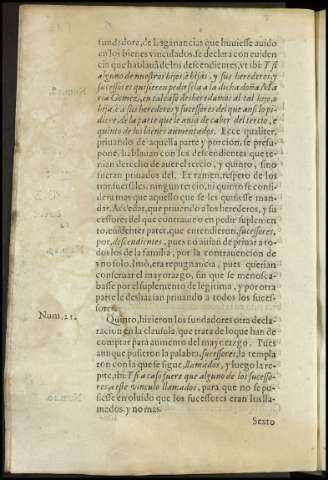 fundadore, de la ganancias que huuiesse auido
en los bienes vinculados, se declara con euiden
cia que hablauã de los descendientes, vt ibi: Y si
alguno de nuestros hijos, ò hijas, y sus herederos, y
sucessores quisieren pedirsela a la dicha doña Maria
Gomez, en tal caso desheredamos al tal hijo, ò
hija, è a sus herederos y sucessores del que ansi lo pi-
diere, de la parte que le auia de caber del tercio, e
quinto de los bienes aumentados. Ecce qualiter,
priuando de aquella parte y porcion, se presu-
pone, hablauan con los descendientes que te-
nian derecho de auer el tercio, y quinto, sino
fueran priuados del. Et tamen, respeto de los
transuersales, ningun tercio, ni quinto se consi-
dera mas que aquello que se les quisiesse man-
dar. Accedat, que priuando a los herederos, y su-
cessores del que contrauino en pedir suplemen-
to, euidenter patet, que entendieron, sucessores,
por, descendientes, pues no auian de priuar a to-
dos los de la familia, por la contrauencion de
vno solo. Imò, era repugnancia, pues querian
conseruar el mayorazgo, sin que se menosca-
basse por el suplemento de legitima, y por otra
parte le deshazian priuando a todos los suces-
sores.
Num. 21. Quinto, hizieron los fundadores otra decla-
racion en la clausula, que trata de lo que han de
comprar para aumento del mayorazgo. Pues
aunque pusieron la palabra, sucessores, la templa
ron con la que se sigue, llamados, y luego la re-
pite, ibi: Y si a caso fuere que alguno de los sucesso-
res, a este vinculo llamados, para que no se pu-
siesse en oluido que los sucessores eran los lla-
mados, y no mas.
Sexto